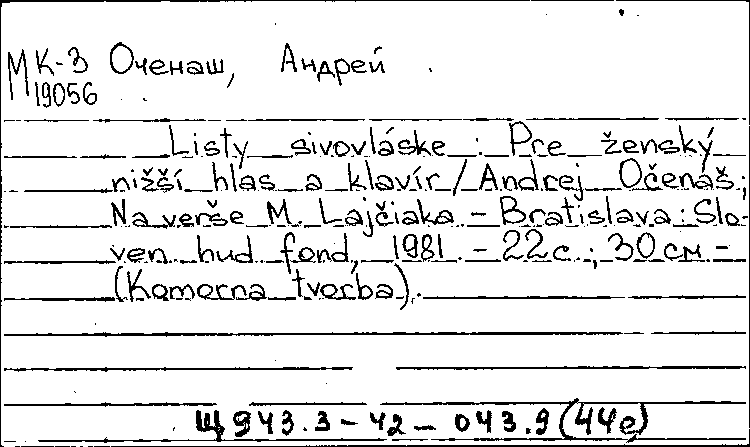 МК-3 Оченаш, Андрей
19056
Listy sivovláske : Pre ženský
nižší hlas a klavír / Andrej Očenáš;
Na verše M. Lajčiaka - Bratislava: Slo-
ven. hud fond, 1981. - 22с.; 30см -
(Komorna tvorba).
Щ943.3-42-043.9(44е)